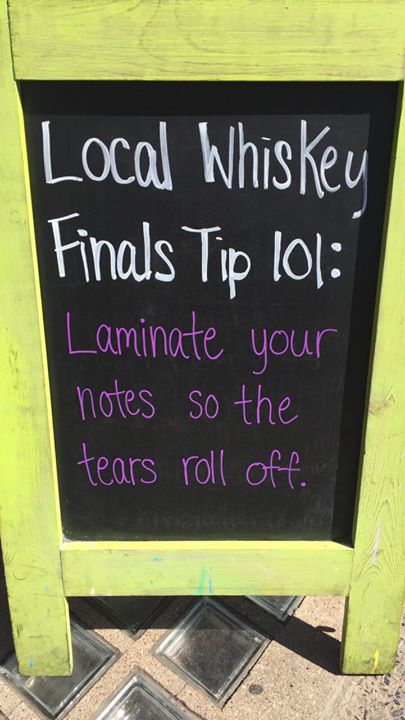 Local Whiskey
Finals Tip 101:
Laminate your
notes so the
tears roll off.